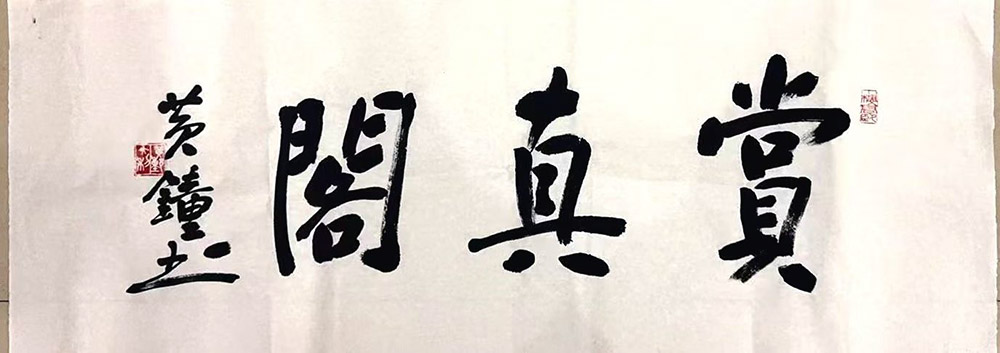 賞真閣
黄鐘书